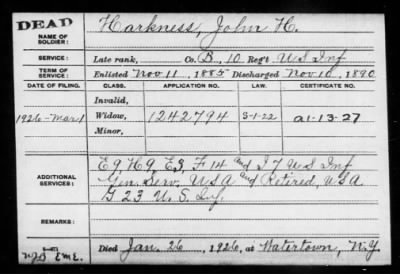 DEAD
NAME OF SOLDIER: Harkness, John H.
SERVICE: Late rank, Co. B, 10 Reg't U S Inf
TERM OF SERVICE: Enlisted Nov 11, 1885 Discharged Nov 10, 1890
DATE OF FILING. CLASS. APPLICATION NO. LAW. CERTIFICATE NO.
Invalid,
1926-Mar 1 Widow, 1242794 3-1-22 a1-13-27
Minor,
E 9, H 9, E 3, F 14 and I 7 U S Inf
ADDITIONAL SERVICES: Gen. Serv. U S A and Retired, U S A
G 23 U. S. Inf
REMARKS:
Died Jan. 26, 1926, at Watertown, N.Y.